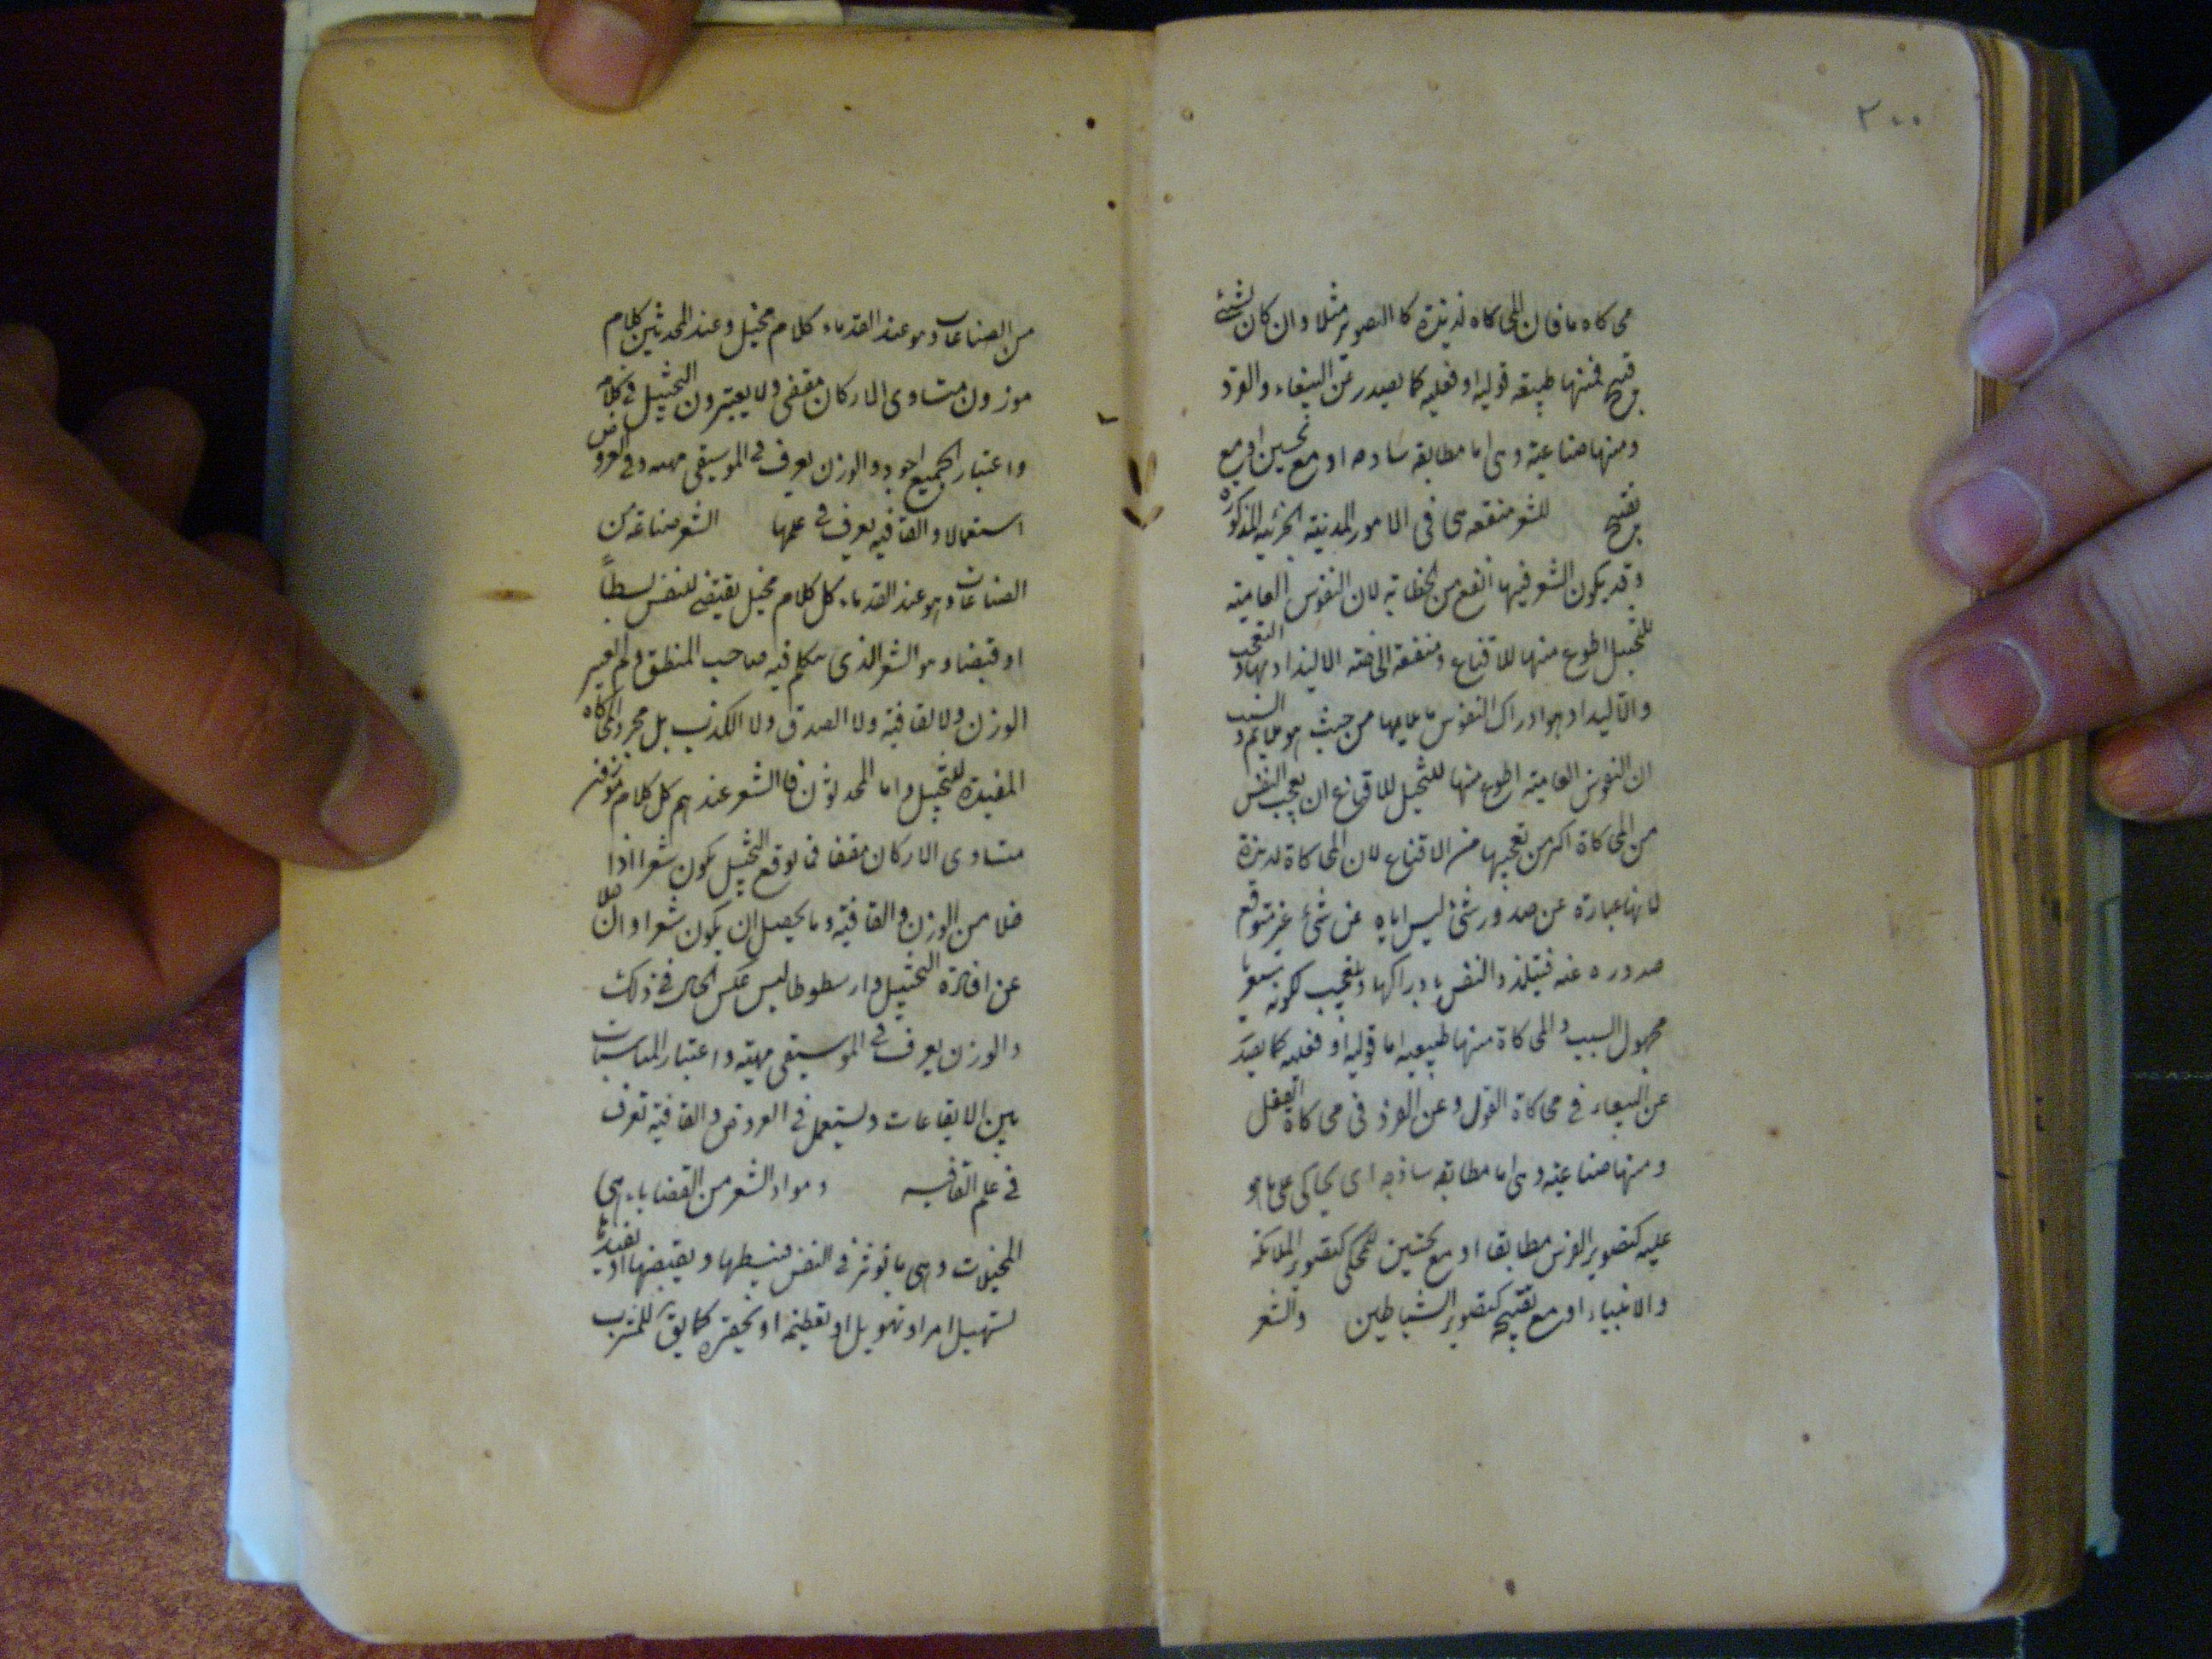 ٢٠٠
محاكاه ما فان المحاكاه لذيذة كالتصوير مثلا وان كان لشئ
قبيح فمنها طبيعة قوليه او فعليه كما يصدر عن الببغاء والقرد
ومنها صناعية وهى اما مطابقه سادجه او مع تحسين او مع
تقبيح للشعر منفعه هى فى الامور المدنيته الجزئيه المذكوره
وقد يكون الشعر فيها انفع من الخطابة لان النفوس العامية
للتخييل اطوع منها للاقناع ومنفعة الخاصة الاليذاذ بها والتعجب
والاليذاذ هو ادراك النفوس ما يلايمها من حيث هو ملايم والسبب
ان النفوس العامية اطوع منها للتخييل للاقناع ان تعجب النفس
من المحاكاة اكثر من تعجبها من الاقناع لان المحاكاة لذيذة
لانها عبارة عن صدور شئ ليس اياه عن شئ غير متوقع
صدوره عنه فيتلذذ النفس بادراكها وتعجب لكونه
مجهول السبب والمحاكاة منها طبيعيه اما قوليه او فعليه كما يصدر
عن الببغاء فى محاكاة القول وعن القرد فى محاكاة الفعل
ومنها صناعيه وهى اما مطابقه ساذجه اى يحاكى على ما هو
عليه كتصوير الفرس مطابقا او مع تحسين للمحكى كتصوير الملائكة
والانبياء او مع تقبيح كتصوير الشياطين والشعر
من الصناعات وهو عند القدماء كلام مخيل وعند المحدثين كلام
موزون متساوى الاركان مقفى ولا يعتبرون التخييل فى كلام
واعتبار الجميع اجود والوزن يعرف فى الموسيقى مهيه وفى العروض
استعمالا والقافيه يعرف فى علمها الشعر صناعة من
الصناعات وهو عند القدماء كل كلام مخيل يقتضى للنفس بسطاً
او قبضا وهو الشعر الذى يتكلم فيه صاحب المنطق ولم يعتبر
الوزن ولا القافية ولا الصدق ولا الكذب بل مجرد المحاكاه
المفيدة للتخييل واما المحدثون فالشعر عندهم كل كلام موزون
متساوى الاركان مقفا فى توقع التخييل يكون شعرا اذا
خلا من الوزن والقافية وما يحصل ان يكون شعرا وان خلا
عن افادة التخييل وارسطوطاليس عكس الحال فى ذلك
والوزن يعرف فى الموسيقى مهية واعتبار المناسبات
بين الايقاعات ويستعمل فى العروض والقافية تعرف
فى علم القافيه ومواد الشعر من القضايا هى
المخيلات وهى ما تؤثر فى النفس فتبسطها وتقبضها او تفيدها
تسهيل امر او تهويل او تعظيمه او تحقيره كما يق للشرب